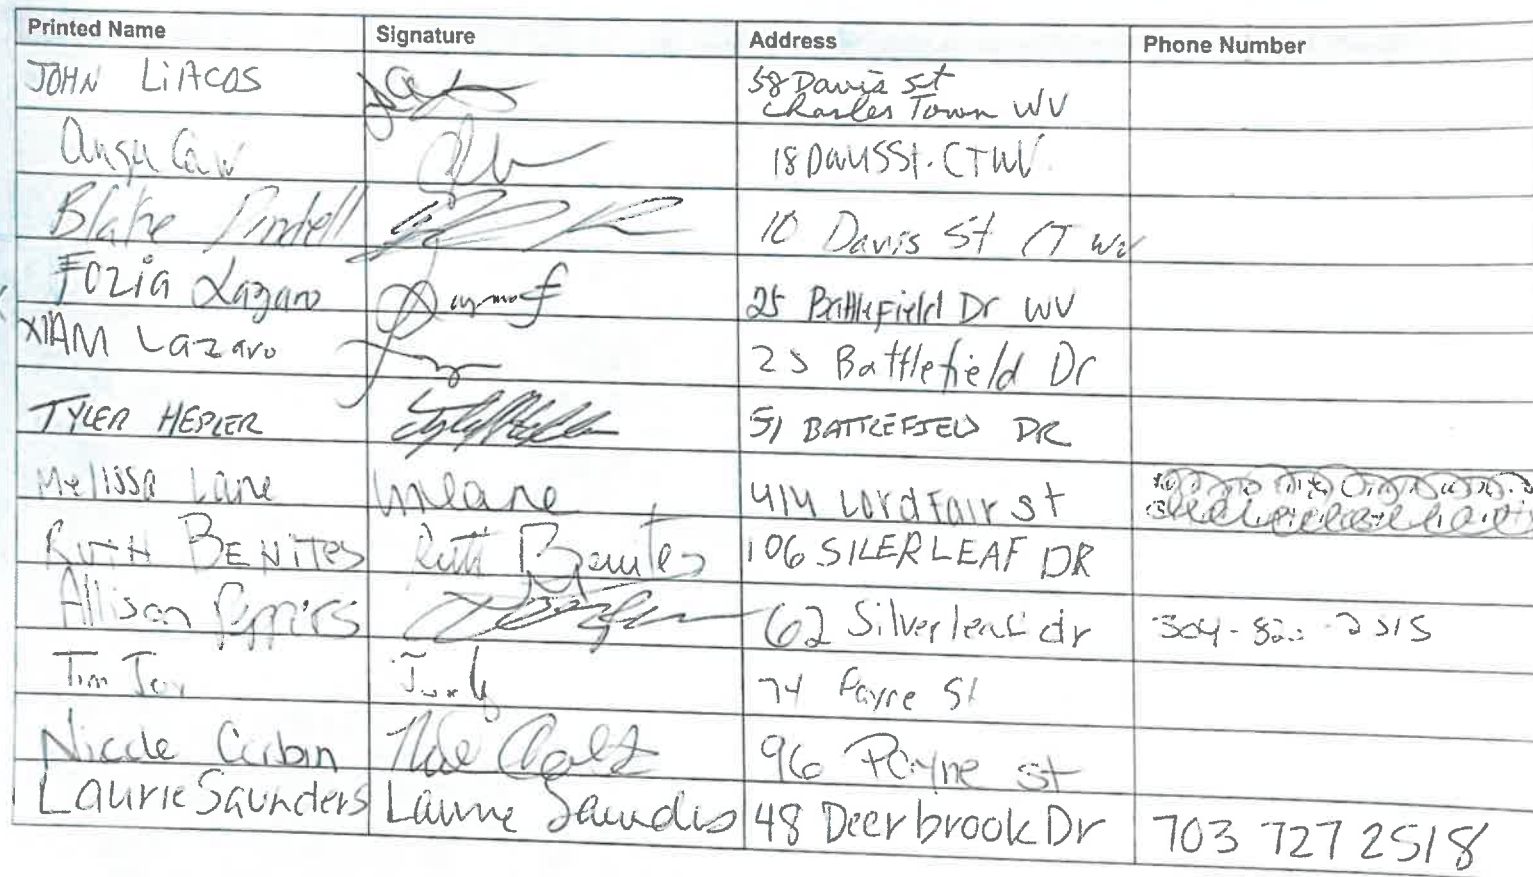 Printed Name Signature Address Phone Number
JOHN LIACOS 58 Davis st
Charles Town WV
18 Davis St. CTWV
Blake 10 Davis St CT WV
Fozia Lazaro 25 Battlefield Dr WV
XIAM Lazaro 25 Battlefield Dr
TYLER HEPLER 51 BATTLEFIELD DR
Melissa Lane mlane 414 Lord Fair st
RUTH BENITES Ruth Benites 106 SILERLEAF DR
Allison 62 Silverleaf dr 304-
Tim 74 Payne St
Nicole Corbin 96 Payne st
Laurie Saunders Laurie Saunders 48 Deerbrook Dr 703 727 2518